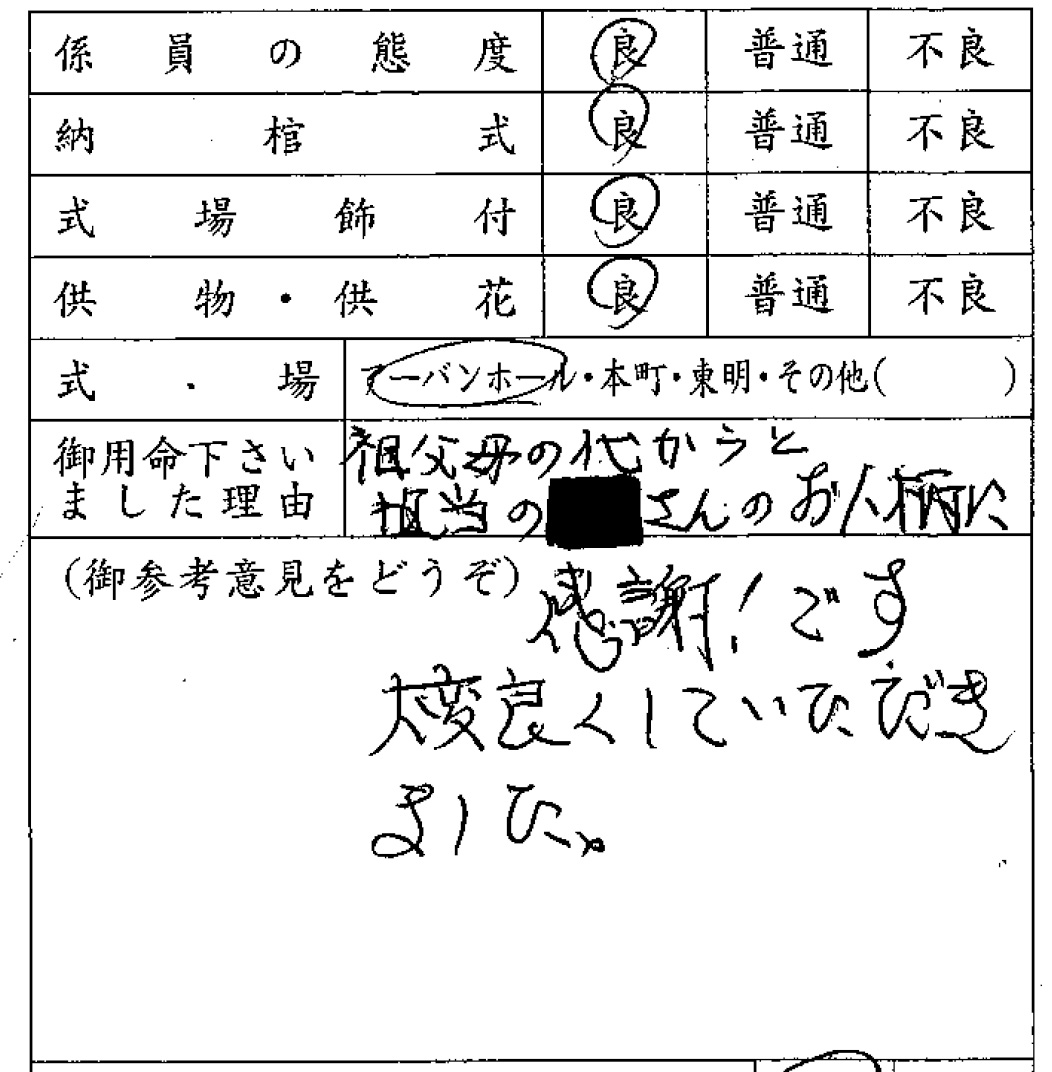 係員の態度 良 普通 不良
納棺式 良 普通 不良
式場飾付 良 普通 不良
供物・供花 良 普通 不良
式・場 アーバンホール・本町・東明・その他( )
御用命下さい
ました理由
祖父母の代からと
担当の さんのお人柄に
(御参考意見をどうぞ)
感謝!です
大変良くしていただき
ました。